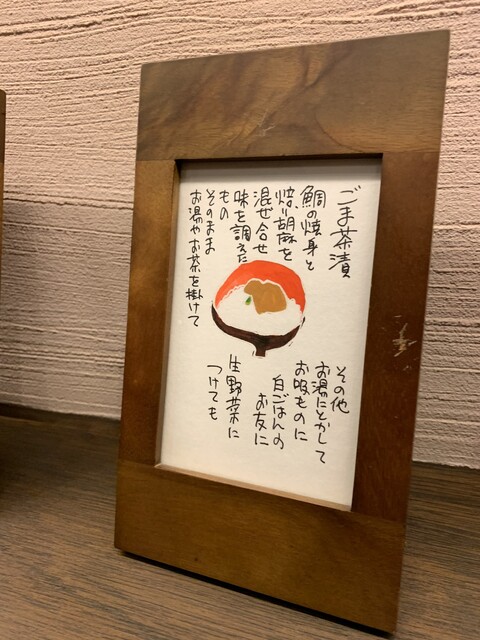 ごま茶漬
鯛の焼身と
焙り胡麻を
混ぜ合せ
味を調えた
もの
そのまま
お湯やお茶を掛けて
その他
お湯にとかして
お吸ものに
白ごはんの
お友に
生野菜に
つけても